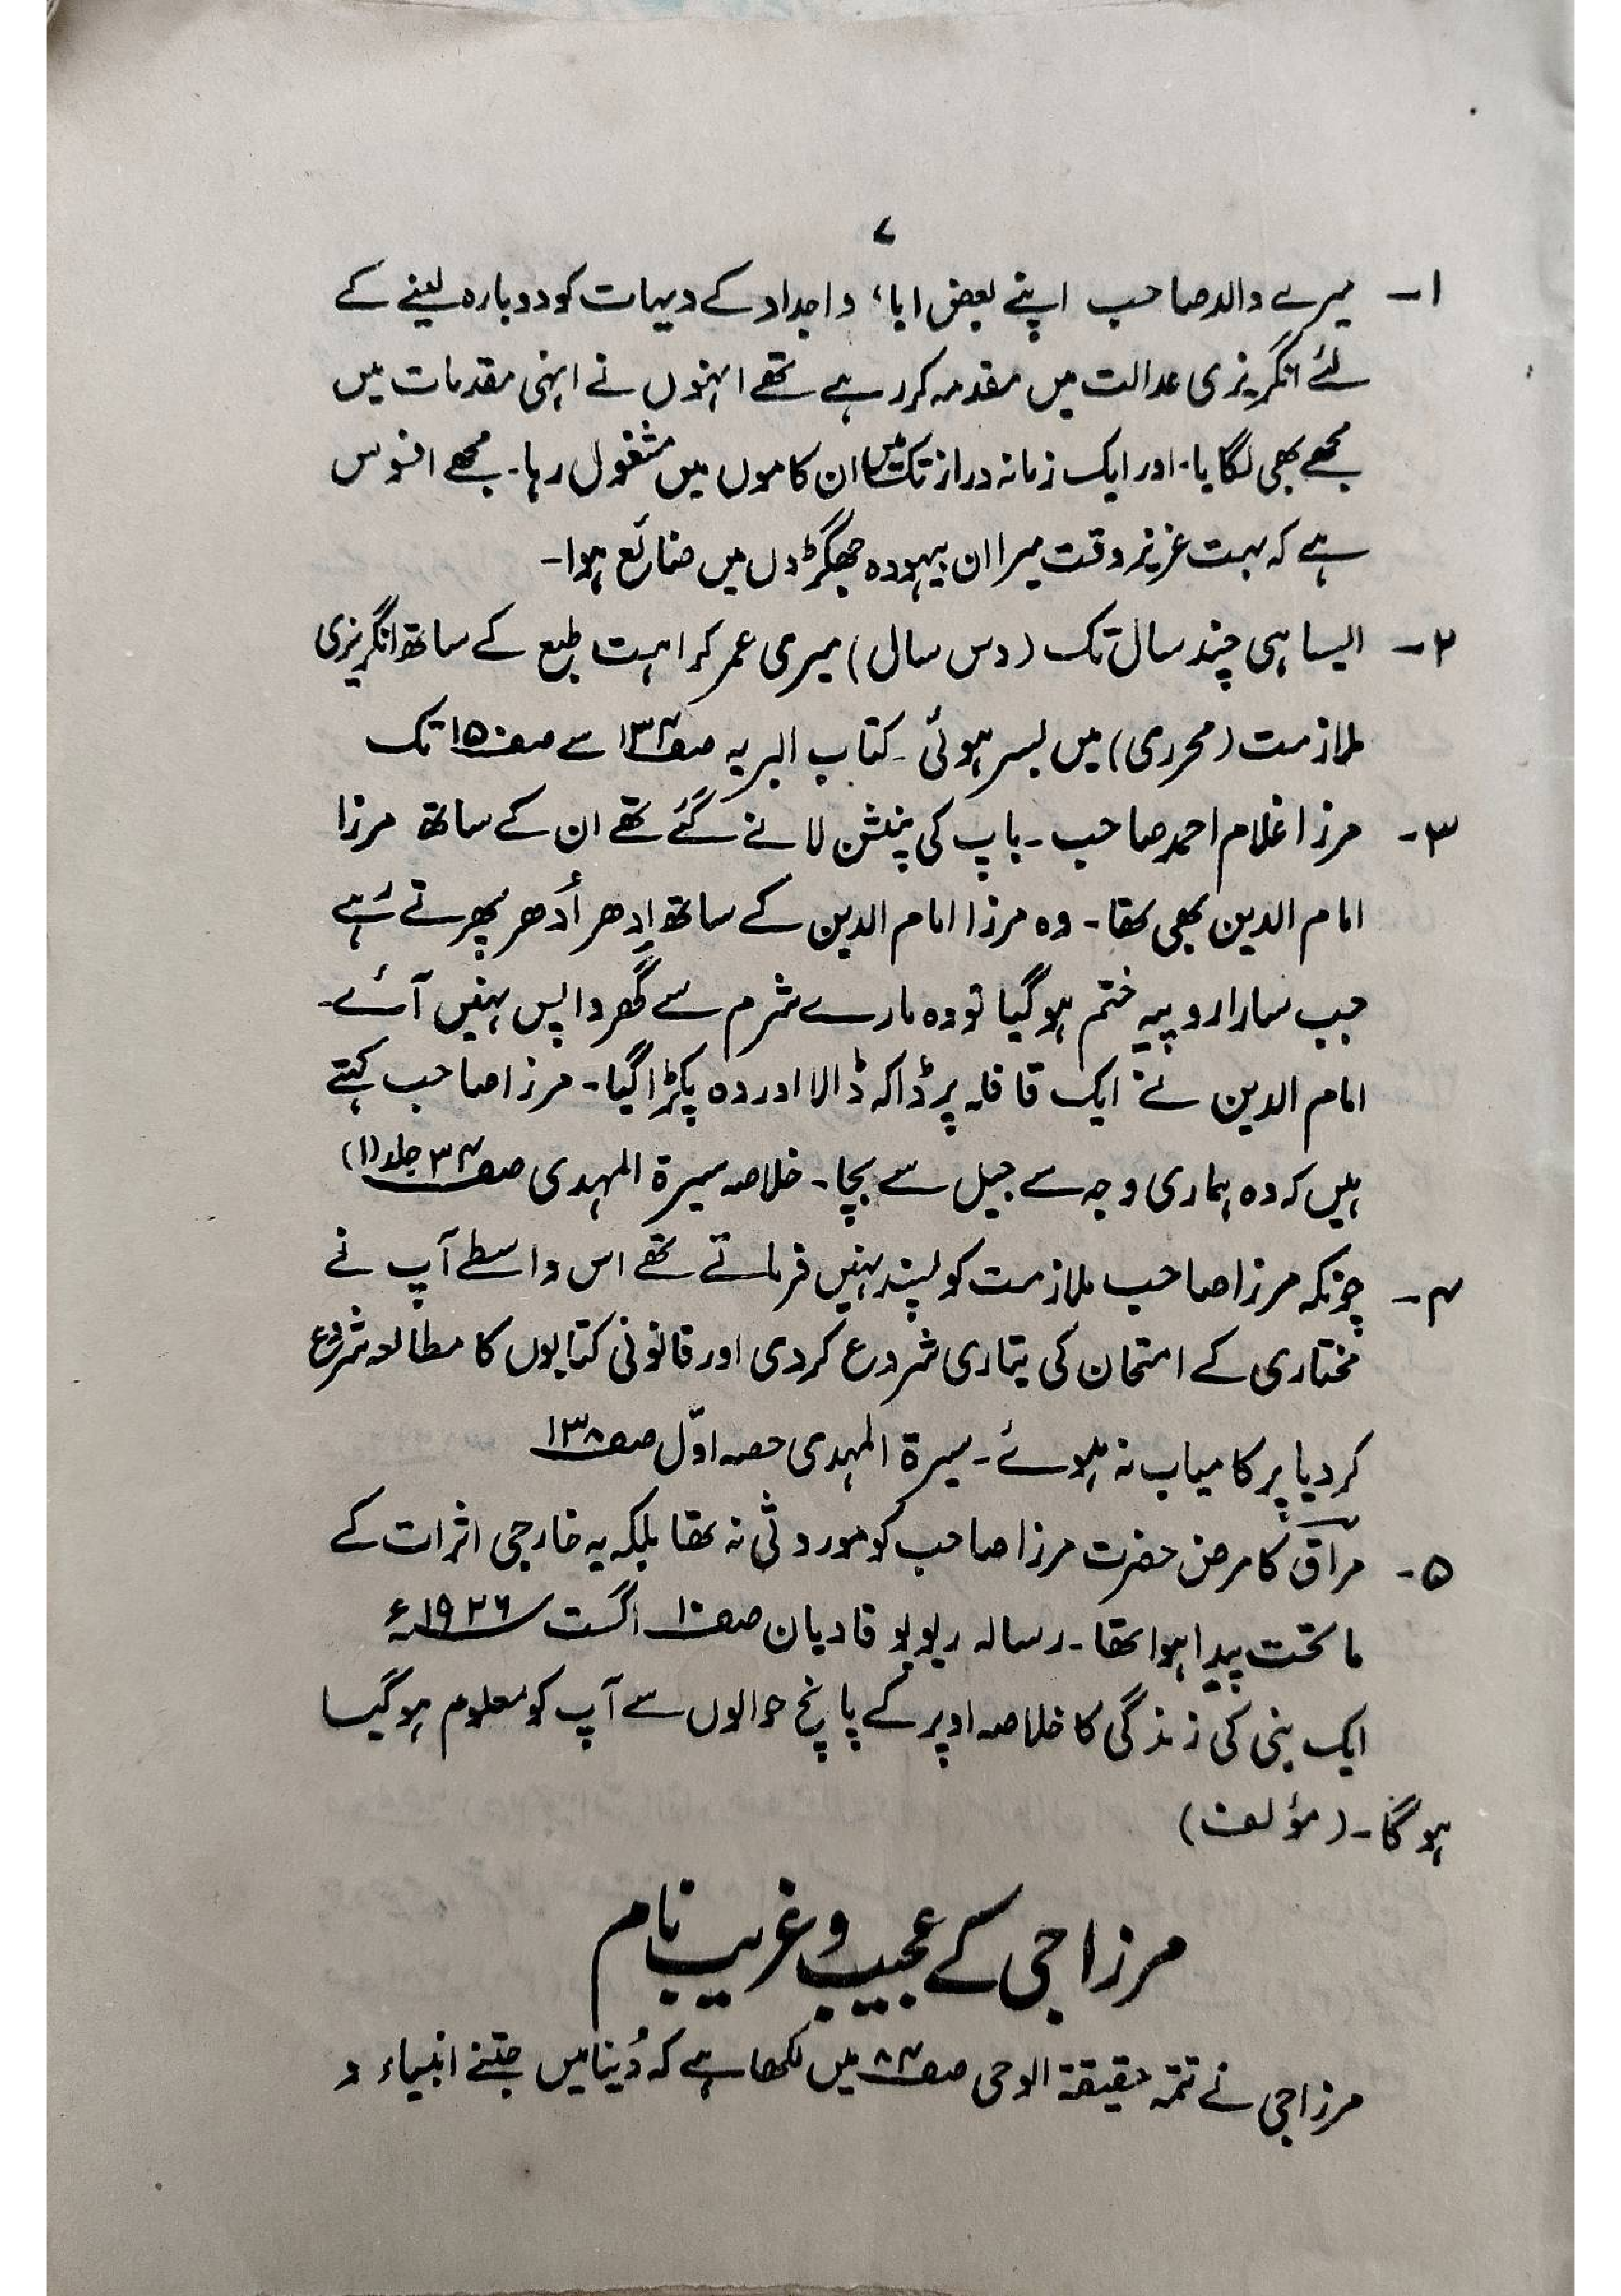 ۷
۱- میرے والد صاحب اپنے بعض اباء و اجداد کے دیہات کو دوبارہ لینے کے
لئے انگریزی عدالت میں مقدمہ کر رہے تھے انہوں نے انہی مقدمات میں
مجھے بھی لگایا۔ اور ایک زمانہ دراز تک میں ان کاموں میں مشغول رہا۔ مجھے افسوس
ہے کہ بہت عزیز وقت میرا ان بیہودہ جھگڑوں میں ضائع ہوا۔
۲- ایسا ہی چند سال تک (دس سال) میری عمر کراہت طبع کے ساتھ انگریزی
ملازمت (محرری) میں بسر ہوئی۔ کتاب البریہ صفہ ۱۳۴ سے صفہ ۱۵۰ تک
۳- مرزا غلام احمد صاحب۔ باپ کی پنشن لانے گئے تھے ان کے ساتھ مرزا
امام الدین بھی تھا۔ وہ مرزا امام الدین کے ساتھ اِدھر اُدھر پھرتے رہے
جب سارا روپیہ ختم ہو گیا تو وہ مارے شرم سے گھر واپس نہیں آئے۔
امام الدین نے ایک قافلہ پر ڈاکہ ڈالا اور وہ پکڑا گیا۔ مرزا صاحب کہتے
ہیں کہ وہ ہماری وجہ سے جیل سے بچا۔ خلاصہ سیرۃ المہدی صفہ ۳۴ جلد (۱)
۴- چونکہ مرزا صاحب ملازمت کو پسند نہیں فرماتے تھے اس واسطے آپ نے
مختاری کے امتحان کی تیاری شروع کر دی اور قانونی کتابوں کا مطالعہ شروع
کر دیا پر کامیاب نہ ہوئے۔ سیرۃ المہدی حصہ اوّل صفہ ۱۳۸
۵- مراق کا مرض حضرت مرزا صاحب کو موروثی نہ تھا بلکہ یہ خارجی اثرات کے
ماتحت پیدا ہوا تھا۔ رسالہ ریویو قادیان صفہ ۱۰ اگست ۱۹۲۶ء
ایک نبی کی زندگی کا خلاصہ اوپر کے پانچ حوالوں سے آپ کو معلوم ہو گیا
ہو گا۔ (مؤلف)
مرزا جی کے عجیب و غریب نام
مرزا جی نے تتمہ حقیقۃ الوحی صفہ ۸۴ میں لکھا ہے کہ دُنیا میں جتنے انبیاء و